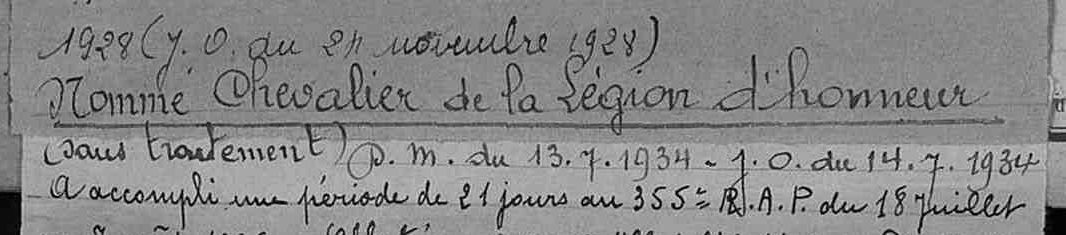 1928 (J. O. du 24 novembre 1928)
Nommé Chevalier de la Légion d'honneur
(sans traitement) D. M. du 13.7.1934 - J. O. du 14.7.1934
A accompli une période de 21 jours au 355e R.A.P. du 18 Juillet